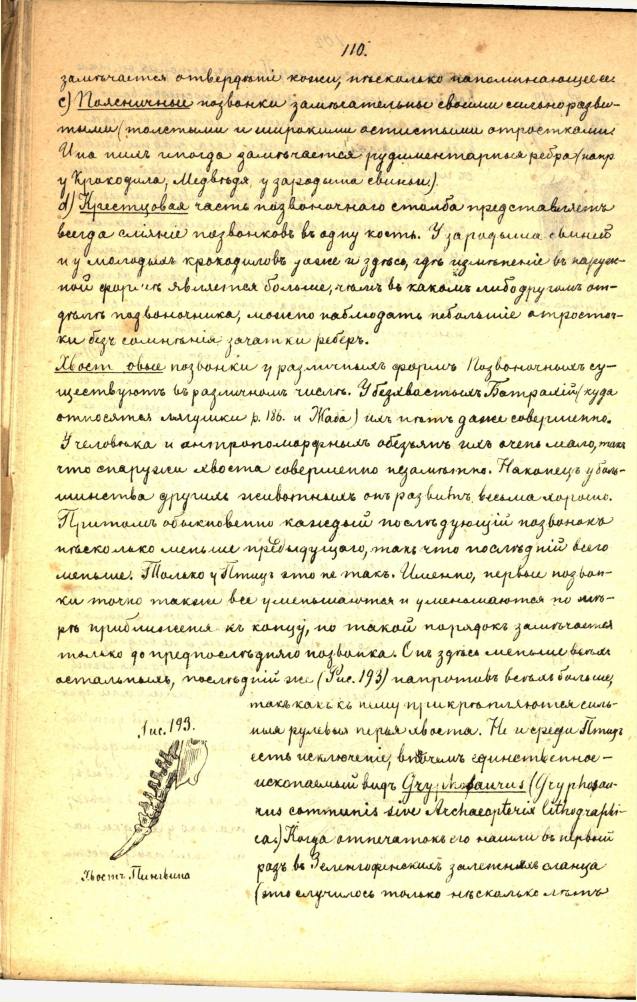 110.
замѣчается отвердѣніе кожи, нѣсколько напоминающее
c) Поясничные позвонки замѣчательны своими сильно разви-
тыми (толстыми и широкими остистыми отростками
И на нихъ иногда замѣчается рудиментарныя ребра (напр
у Крокодила, Медвѣдя, у зародыша свиньи).
d) Крестцовая часть позвоночнаго столба представляетъ
всегда сліяніе позвонковъ въ одну кость. У зародыша свиней
и у молодыхъ крокодиловъ даже и здѣсь, гдѣ измѣненіе въ наруж-
ной формѣ является больше, чѣмъ въ какомъ либо другомъ от-
дѣлѣ позвоночника, можно наблюдать небольшіе отросточ-
ки безъ сомнѣнія зачатки реберъ.
Хвостовые позвонки у различныхъ формъ Позвоночныхъ су-
ществуютъ въ различномъ числѣ. У безхвостыхъ Батрахій (куда
относятся лягушки р. 186. и Жаба) ихъ нѣтъ даже совершенно.
У человѣка и антропоморфныхъ обезьянъ ихъ очень мало, такъ
что снаружи хвоста совершенно незамѣтно. Наконецъ у боль-
шинства другихъ животныхъ онъ развитъ весьма хорошо.
Притомъ обыкновенно каждый послѣдующій позвонокъ
нѣсколько меньше предыдущаго, такъ что послѣдній всего
меньше. Только у Птицъ это не такъ. Именно, первые позвон-
ки точно также все уменьшаются и уменьшаются по мѣ-
рѣ приближенія къ концу, но такой порядокъ замѣчается
только до предпослѣдняго позвонка. Онъ здѣсь меньше всѣхъ
остальныхъ, послѣдній же (Рис. 193) напротивъ всѣхъ больше,
такъ какъ къ нему прикрѣпляются силь-
ныя рулевыя перья хвоста. Но и среди Птицъ
есть исключеніе, впрочемъ единственное -
ископаемый видъ Gryphosaurus (Gryphosau-
rus communis sive Archaeopterix lithographi-
ca.) Когда отпечатокъ его нашли въ первый
разъ въ Золенгофенскихъ залежахъ сланца
(это случилось только нѣсколько лѣтъ
Рис. 193.
Хвостъ Пингвина